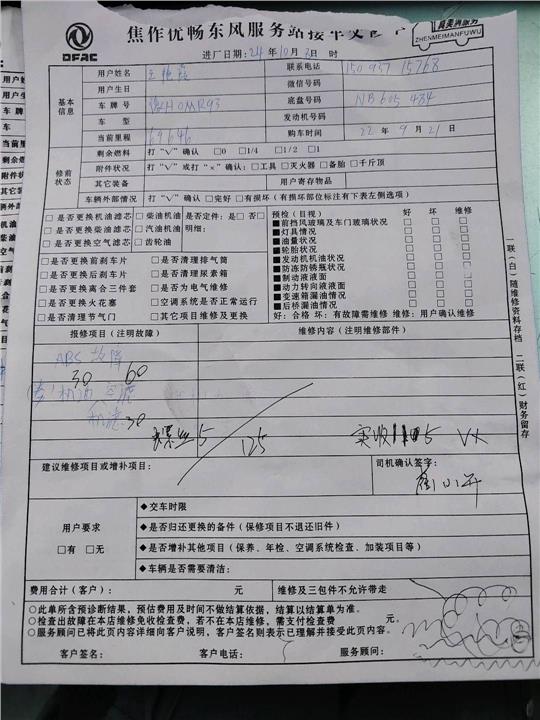 焦作优畅东风服务站接车义
真美满服务
ZHENMEIMANFUWU
DFAC
进厂日期：24年10月 日 时
基本信息
用户姓名 联系电话 150 937 15768
用户生日 微信号码
车牌号 底盘号码 NB605484
车型 发动机号码
当前里程 69646 购车时间 22年9月21日
修前状态
剩余燃料 打“√”确认 □0 □1/4 □1/2 □1
附件状况 打“√”或打“×”确认：□工具 □灭火器 □备胎 □千斤顶
其它装备 用户寄存物品
车辆外部情况 打“√”确认 □完好 □有损坏（有损坏部位标注有下表左侧选项）
□是否更换机油滤芯 □柴油机油 是否定件：是 □否□
□是否更换柴油滤芯 □汽油机油 明细：
□是否更换空气滤芯 □齿轮油
□是否更换前刹车片 □是否清理排气筒
□是否更换后刹车片 □是否清理尿素箱
□是否更换离合三件套 □是否为电气维修
□是否更换火花塞 □空调系统是否正常运行
□是否清理节气门 □其它项目维修及更换
预检（目视） 好 坏 维修
■前挡风玻璃及车门玻璃状况
■灯具情况
■油量状况
■轮胎状况
■发动机机油状况
■防冻防锈瓶状况
■制动液液面
■动力转向液液面
■变速箱漏油情况
■后桥漏油情况
好：合格 坏：有故障需维修 维修：用户确认维修
报修项目（注明故障） 维修内容（注明维修部件）
ABS 故障
30 60
机油 空滤
机滤 30
螺丝 5
125
实收
建议维修项目或增补项目： 司机确认签字：
用户要求
□有 □无
◆交车时限
◆是否归还更换的备件（保修项目不退还旧件）
◆是否增补其他项目（保养、年检、空调系统检查、加装项目等）
◆车辆是否需要清洁：
费用合计（客户）： 元 维修及三包件不允许带走
○此单所含预诊断结果，预估费用及时间不做结算依据，结算以结算单为准。
○检查出故障在本店维修免收检查费，若不在本店维修，需支付检查费 元。
○服务顾问已将此页内容详细向客户说明，客户签名则表示已理解并接受此页内容。
客户签名： 客户电话： 服务顾问：
一联（白）随维修资料存档 二联（红）财务留存